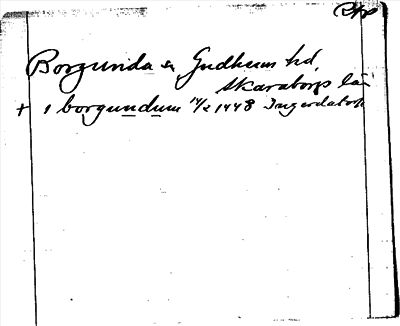 Rpr
Borgunda sn Gudhems hd,
Skaraborgs län
+ i borgundum 14/2 1448 Ingerdatorp